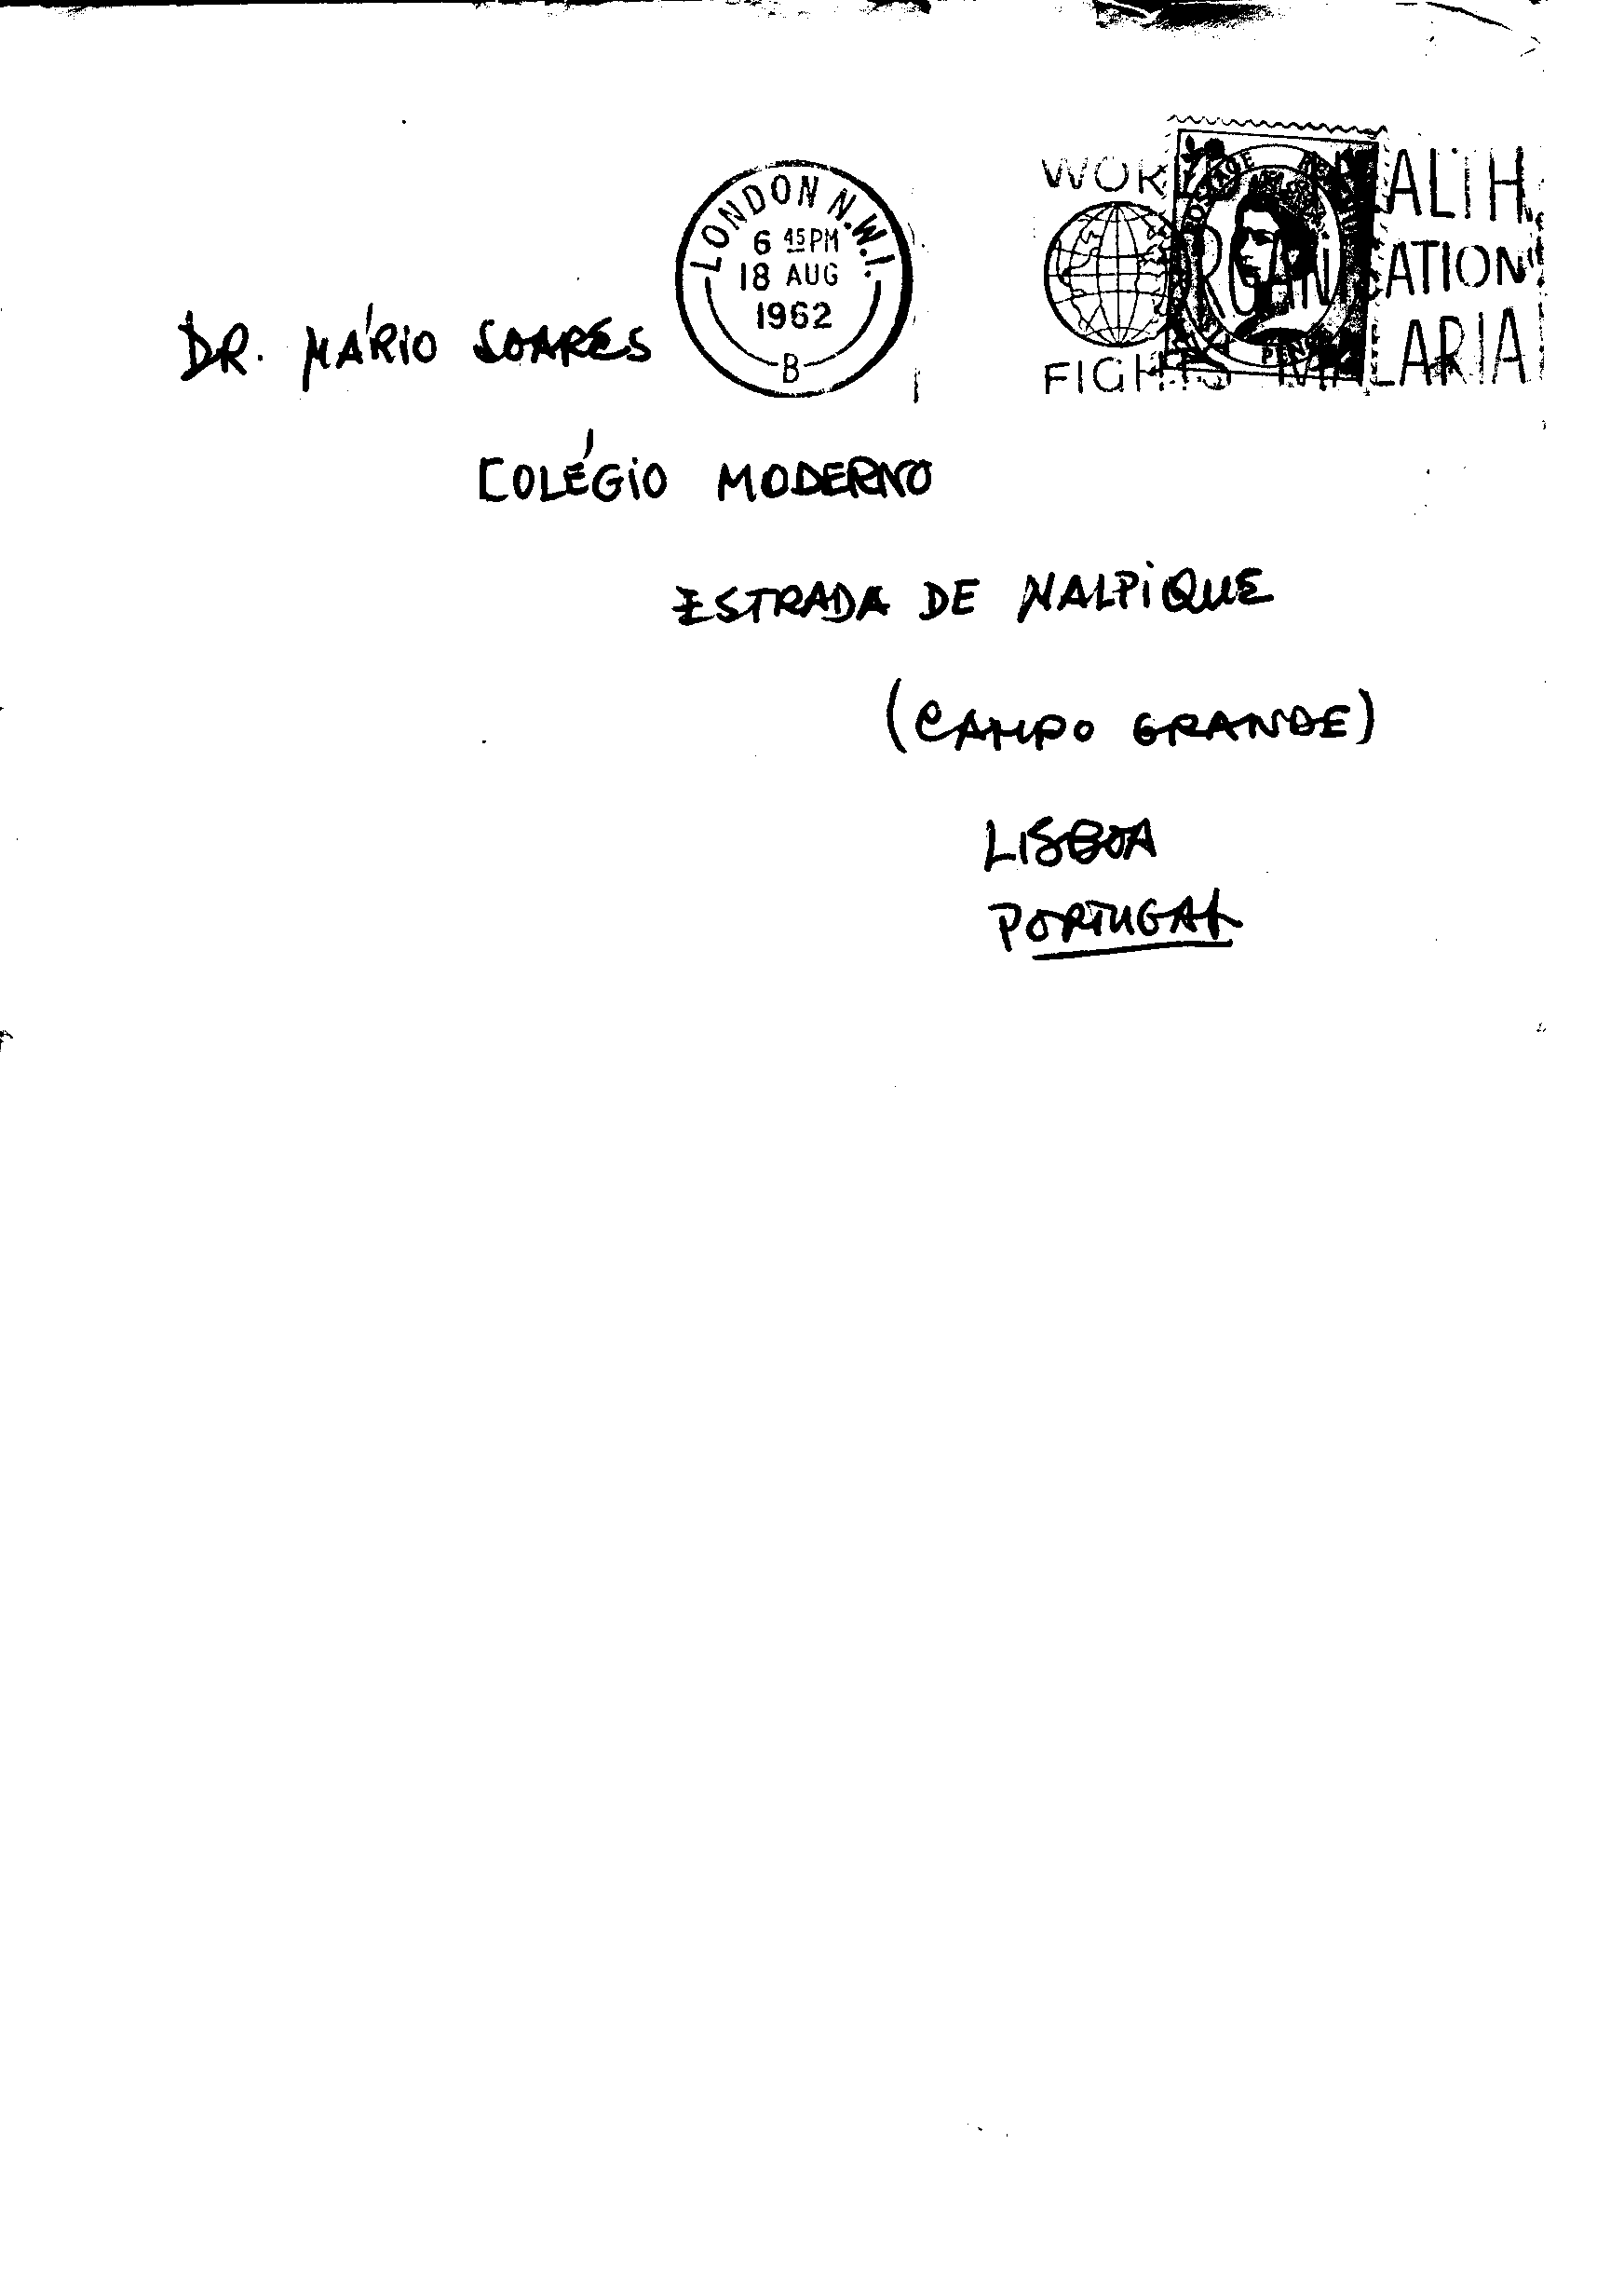 LONDON N.W.1.
6 45 PM
18 AUG
1962
B
WORLD HEALTH
ORGANISATION
FIGHTS MALARIA
POSTAGE
DR. MÁRIO SOARES
COLÉGIO MODERNO
ESTRADA DE MALPIQUE
(CAMPO GRANDE)
LISBOA
PORTUGAL